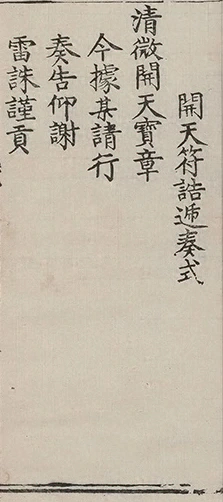 開天符誥遞奏式
清微開天寶章
今據某請行
奏告仰謝
雷誅謹貢